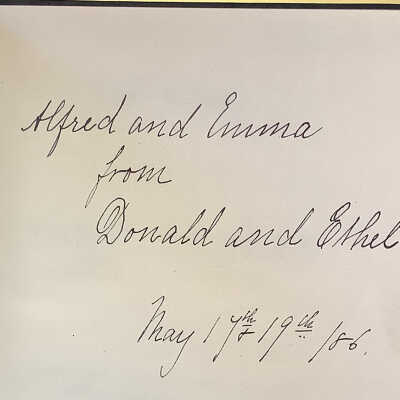 Alfred and Emma
from
Donald and Ethel
May 17th & 19th /86.